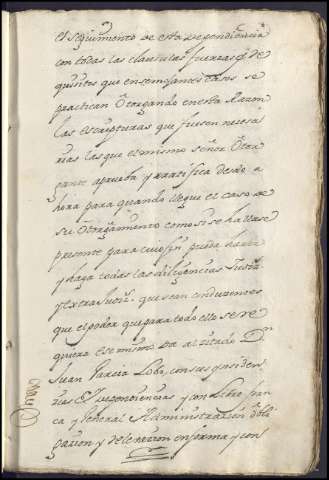 el seguimiento de esta dependiencia
con todas las clausulas fuerzas y re
quisitos que en semejantes casos se
practican Otorgando en esta Razon
las escripturas que fuesen necesa
rias las que el mismo señor Otor
gante aprueba y rratifica desde a
hora para quando llegue el caso de
su Otorgamiento como si se hallase
presente para cuio fin pueda hazer
y haga todas las diligencias Judiz.
y extra Judiz. que sean conduzenses
que el poder que para todo ello se re
quiere ese mismo da al zitado Dn.
Juan Garcia Lobo, con sus ynsiden
zias y dependencias y con libre fran
ca y general Administrazion obli
gazion y relevazion en forma y con